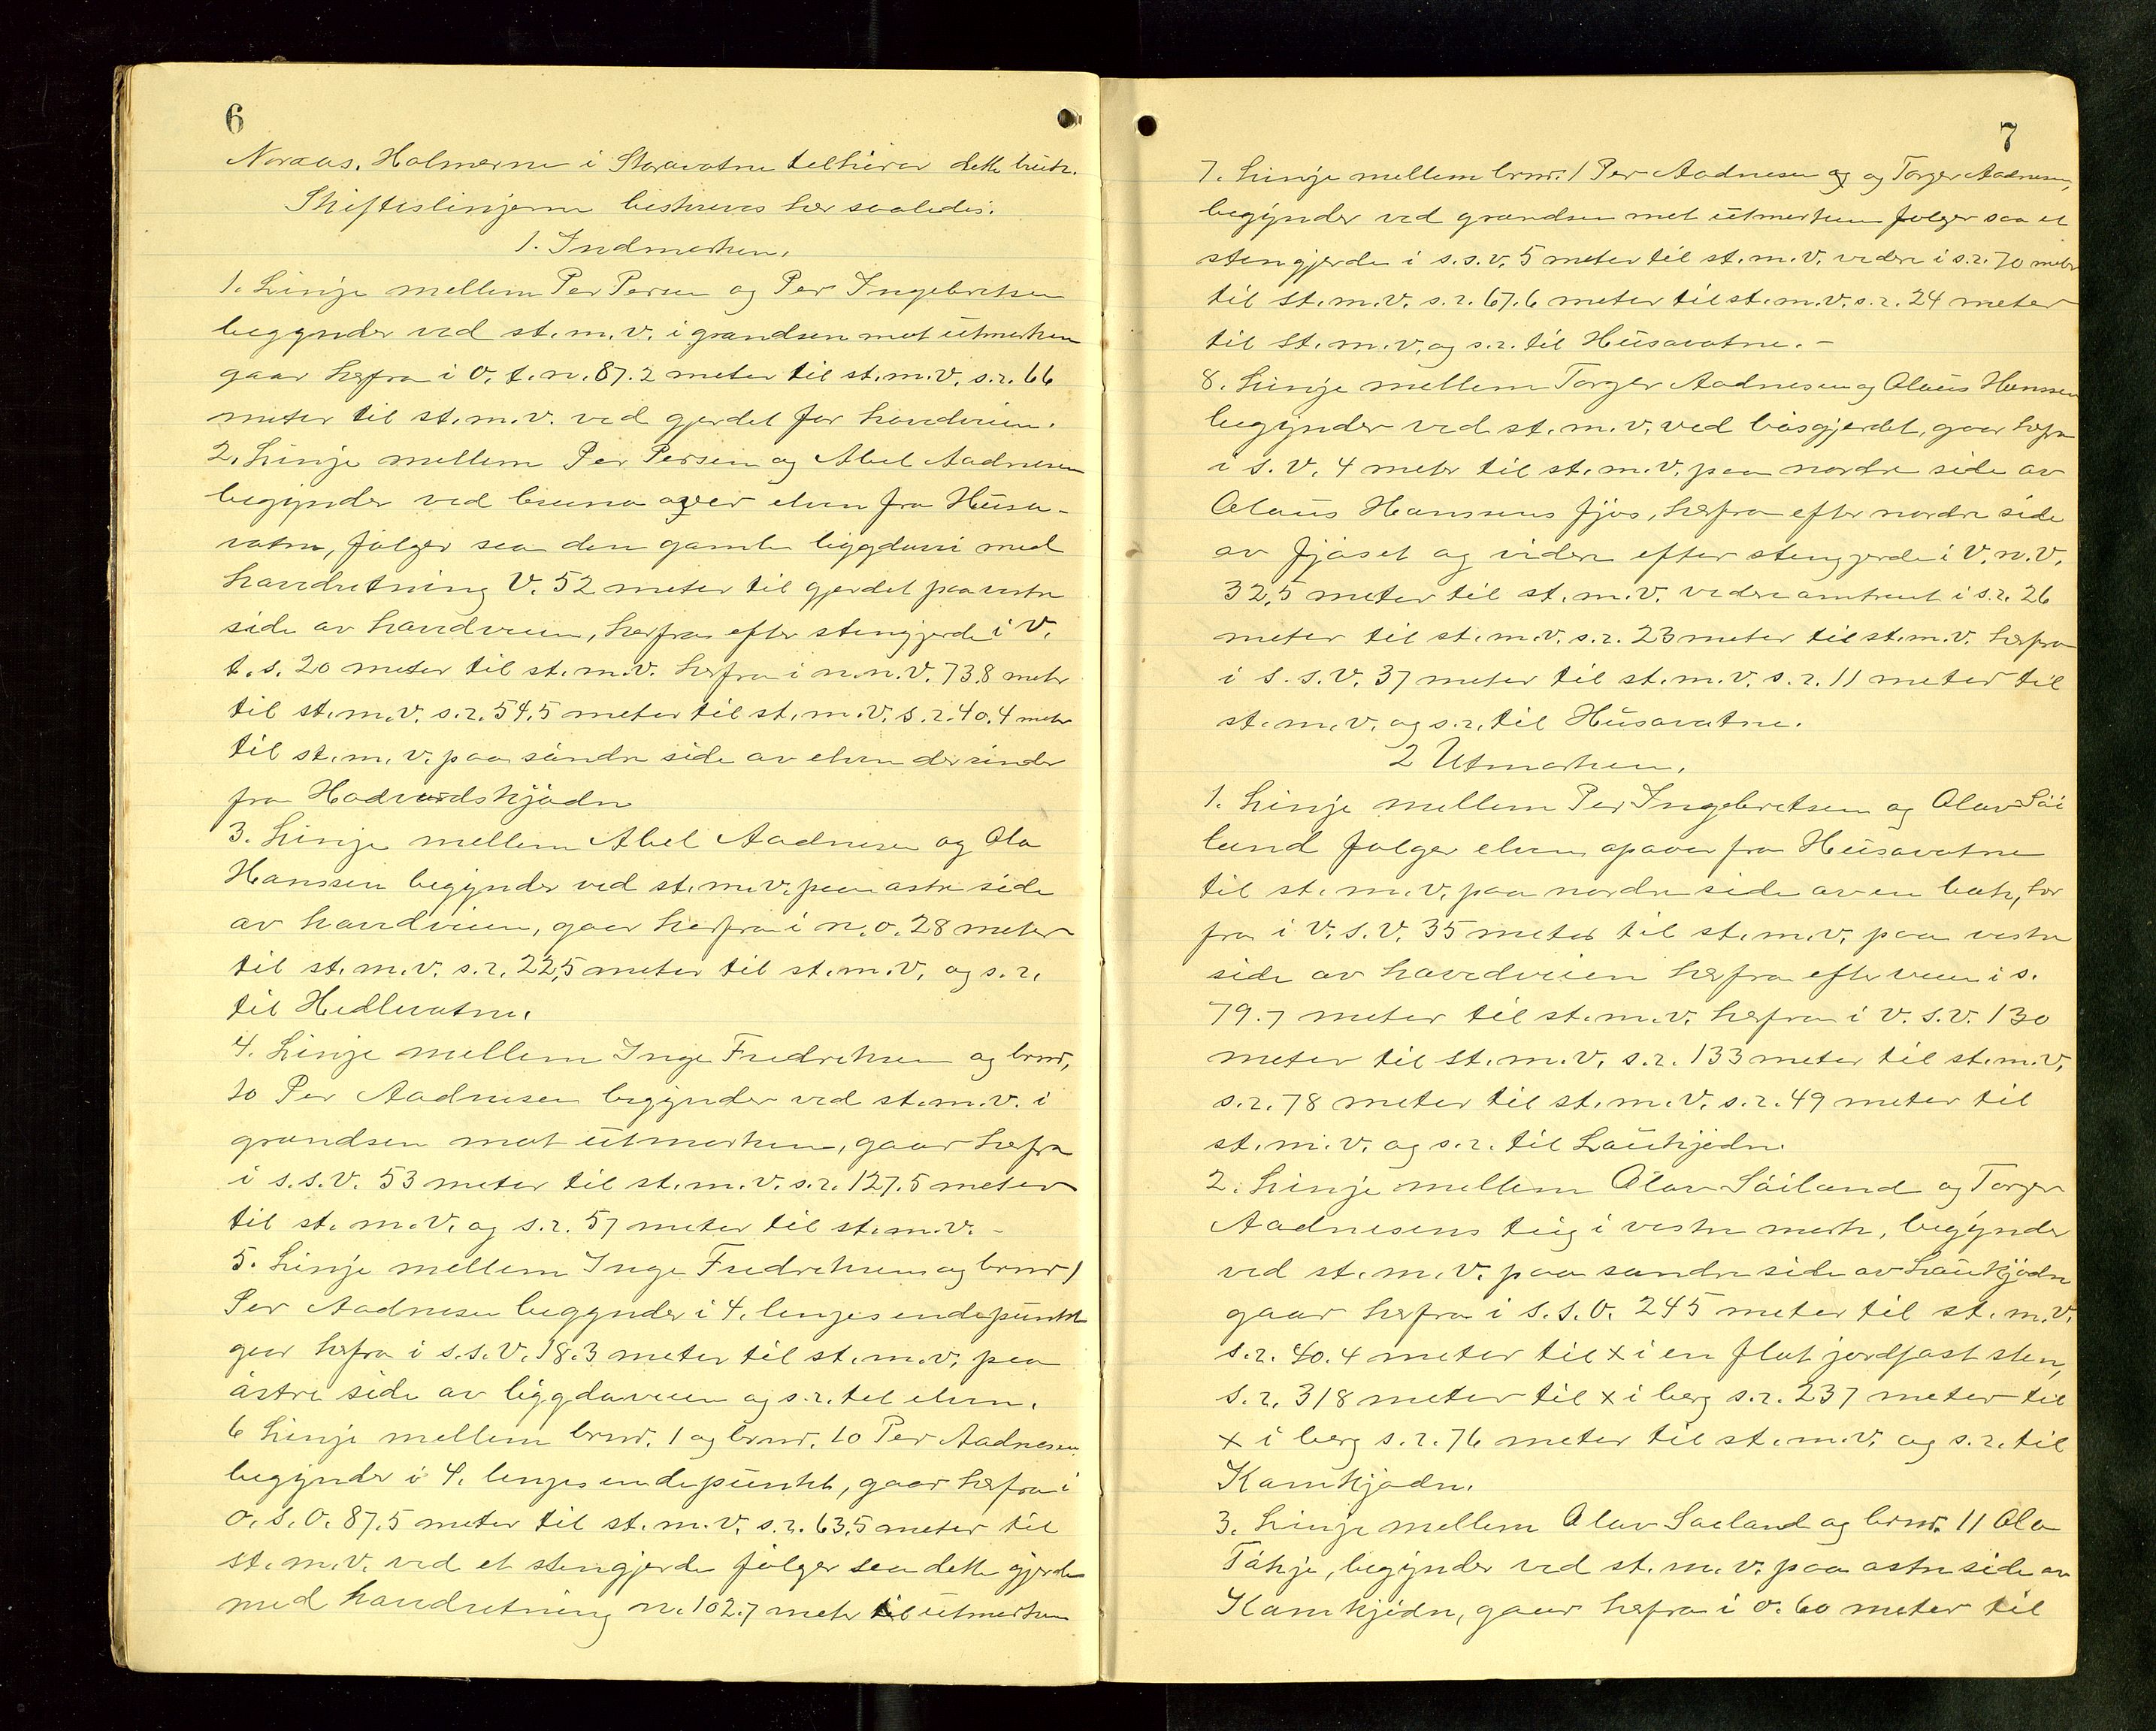 6
Noraas. Holmerne i Storavatne tilhører dette bruk.
Skifteslinjerne beskrives her saaledes.
1. Indmarken.
1. Linje mellem Per Persen og Per Ingebretsen
begynder ved st.m.v. i grændsen mot utmarken
gaar herfra i V. t. n. 87.2 meter til st.m.v. s.r. 66
meter til st.m.v. ved gjerdet for hovedveien.
2. Linje mellem Per Persen og Abel Aadnesen
begynder ved bruna over elven fra Husa-
vatne, følger saa den gamle byggdavei med
hovedretning V. 52 meter til gjerdet paa vestre
side av hovedveien, herfra efter stengjerde i V.
t. s. 20 meter til st.m.v. herfra i n.n.v. 73.8 meter
til st.m.v. s.r. 54.5 meter til st.m.v. s.r. 40.4 meter
til st.m.v. paa søndre side av elven der rinder
fra Hodnrdskjødn
3. Linje mellem Abel Aadnesen og Ola
Hanssen begynder ved st.m.v. paa østre side
av hovedveien, gaar herfra i n.o. 28 meter
til st.m.v. s.r. 22,5 meter til st.m.v. og s.r.
til Hedlevatne.
4. Linje mellem Inge Fredriksen og brnr.
10 Per Aadnesen begynder ved st.m.v. i
grændsen mot utmarken, gaar herfra
i s.s.v. 53 meter til st.m.v. s.r. 127.5 meter
til st.m.v. og s.r. 57 meter til st.m.v. -
5. Linje mellem Inge Fredriksen og brnr 1
Per Aadnesen begynder i 4. linjes endepunkt
gaar herfra i s.s.v. 18.3 meter til st.m.v. paa
østre side av byggdaveien og s.r. til elven.
6 Linje mellem brnr. 1 og brnr. 10 Per Aadnesen
begynder i 4. linjes endepunkt, gaar herfra i
o.s.o. 87.5 meter til st.m.v. s.r. 63.5 meter til
st.m.v. ved et stengjerde følger saa dette gjerde
med hovedretning n. 102.7 meter til utmarken
7
7. Linje mellem brnr. 1 Per Aadnesen og og Torger Aadnesen,
begynder ved grændsen mot utmarken følger saa et
stengjerde i s.s.v. 5 meter til st.m.v. videre i s.r. 70 meter
til st.m.v. s.r. 67.6 meter til st.m.v. s.r. 24 meter
til st.m.v. og s.r. til Husavatne. -
8. Linje mellem Torger Aadnesen og Olaus Hansen
begynder ved st.m.v. ved bøsgjerdet, gaar herfra
i s.v. 4 meter til st.m.v. paa nordre side av
Olaus Hansens fjøs, herfra efter nordre side
av fjøset og videre efter stengjerde i V.n.V.
32,5 meter til st.m.v. videre omtrent i s.r. 26
meter til st.m.v. s.r. 23 meter til st.m.v. herfra
i s.s.v. 37 meter til st.m.v. s.r. 11 meter til
st.m.v. og s.r. til Husavatne.
2 Utmarken.
1. Linje mellem Per Ingebretsen og Olav Søi
land følger elven opover fra Husavatne
til st.m.v. paa nordre side av en bæk, her
fra i V.s.V. 35 meter til st.m.v. paa vestre
side av hovedveien herfra efter veien i s.
79.7 meter til st.m.v. herfra i V.s.v. 130
meter til st.m.v. s.r. 133 meter til st.m.v.
s.r. 78 meter til st.m.v. s.r. 49 meter til
st.m.v. og s.r. til Laukjødn.
2. Linje mellem Olav Søiland og Torger
Aadnesens teig i vestre mark, begynder
ved st.m.v. paa søndre side av Laukjødn
gaar herfra i s.s.o. 245 meter til st.m.v.
s.r. 40.4 meter til x i en flat jordfast sten,
s.r. 318 meter til x i berg s.r. 237 meter til
x i berg s.r. 76 meter til st.m.v. og s.r. til
Kamkjødn.
3. Linje mellem Olav Søeland og brnr. 11 Ola
Tøkje, begynder ved st.m.v. paa østre side av
Kamkjødn, gaar herfra i o. 60 meter til